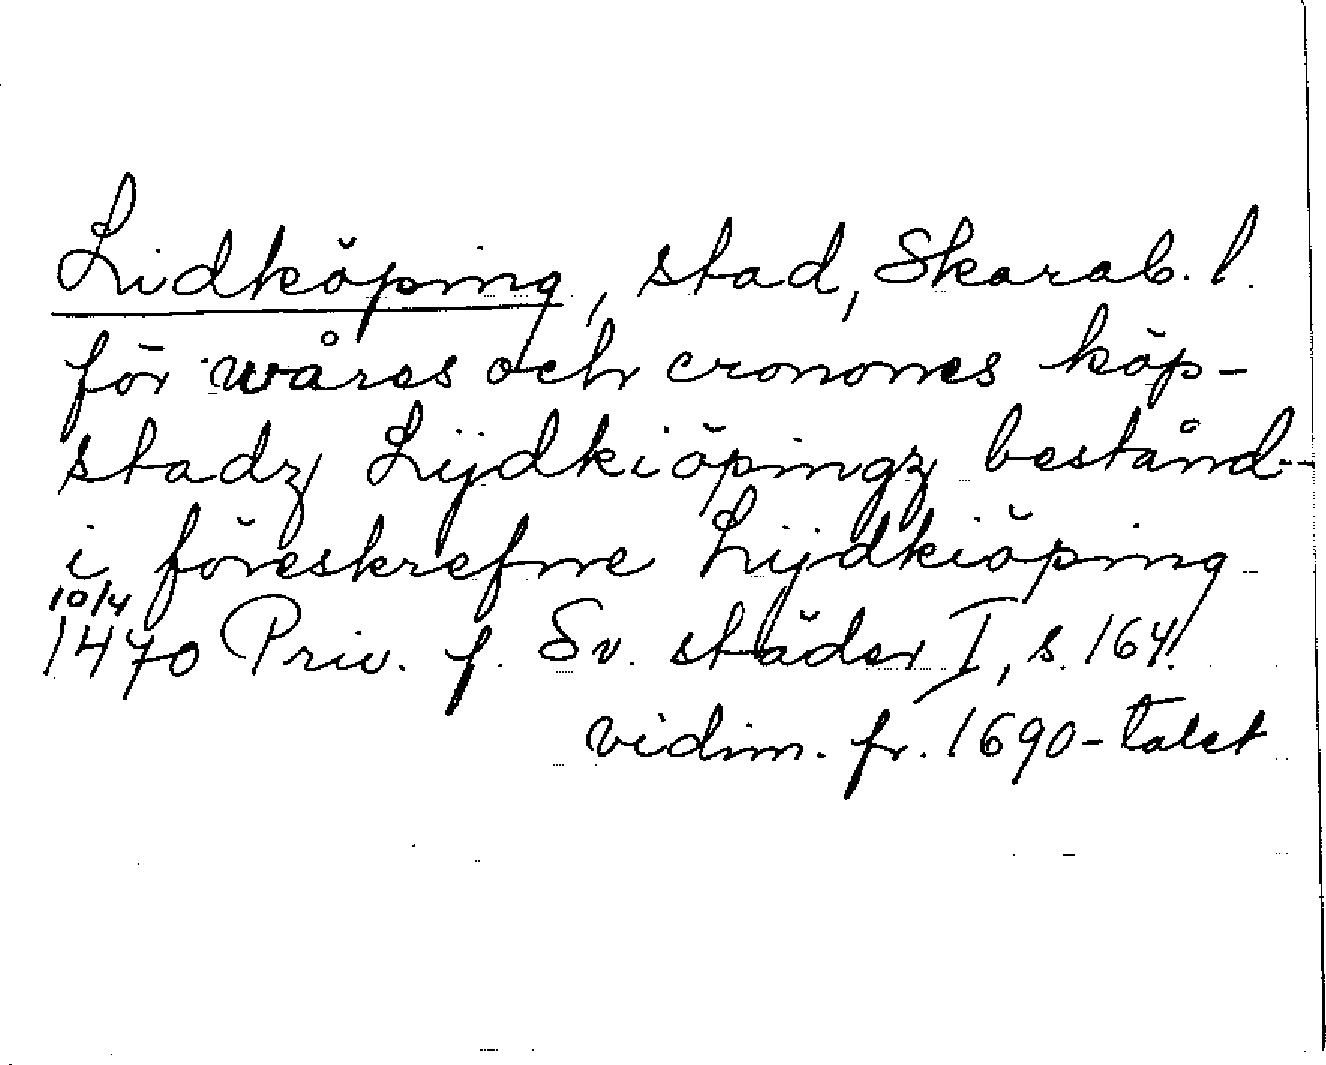 Lidköping, stad, Skarab. l.
för wåres och cronones köp-
stadz Lijdkiöpingz bestånd--
i föreskrefne Lijdkiöping
10/4
1470 Priv. f. Sv. städer I, s. 164.
vidim. fr. 1690-talet